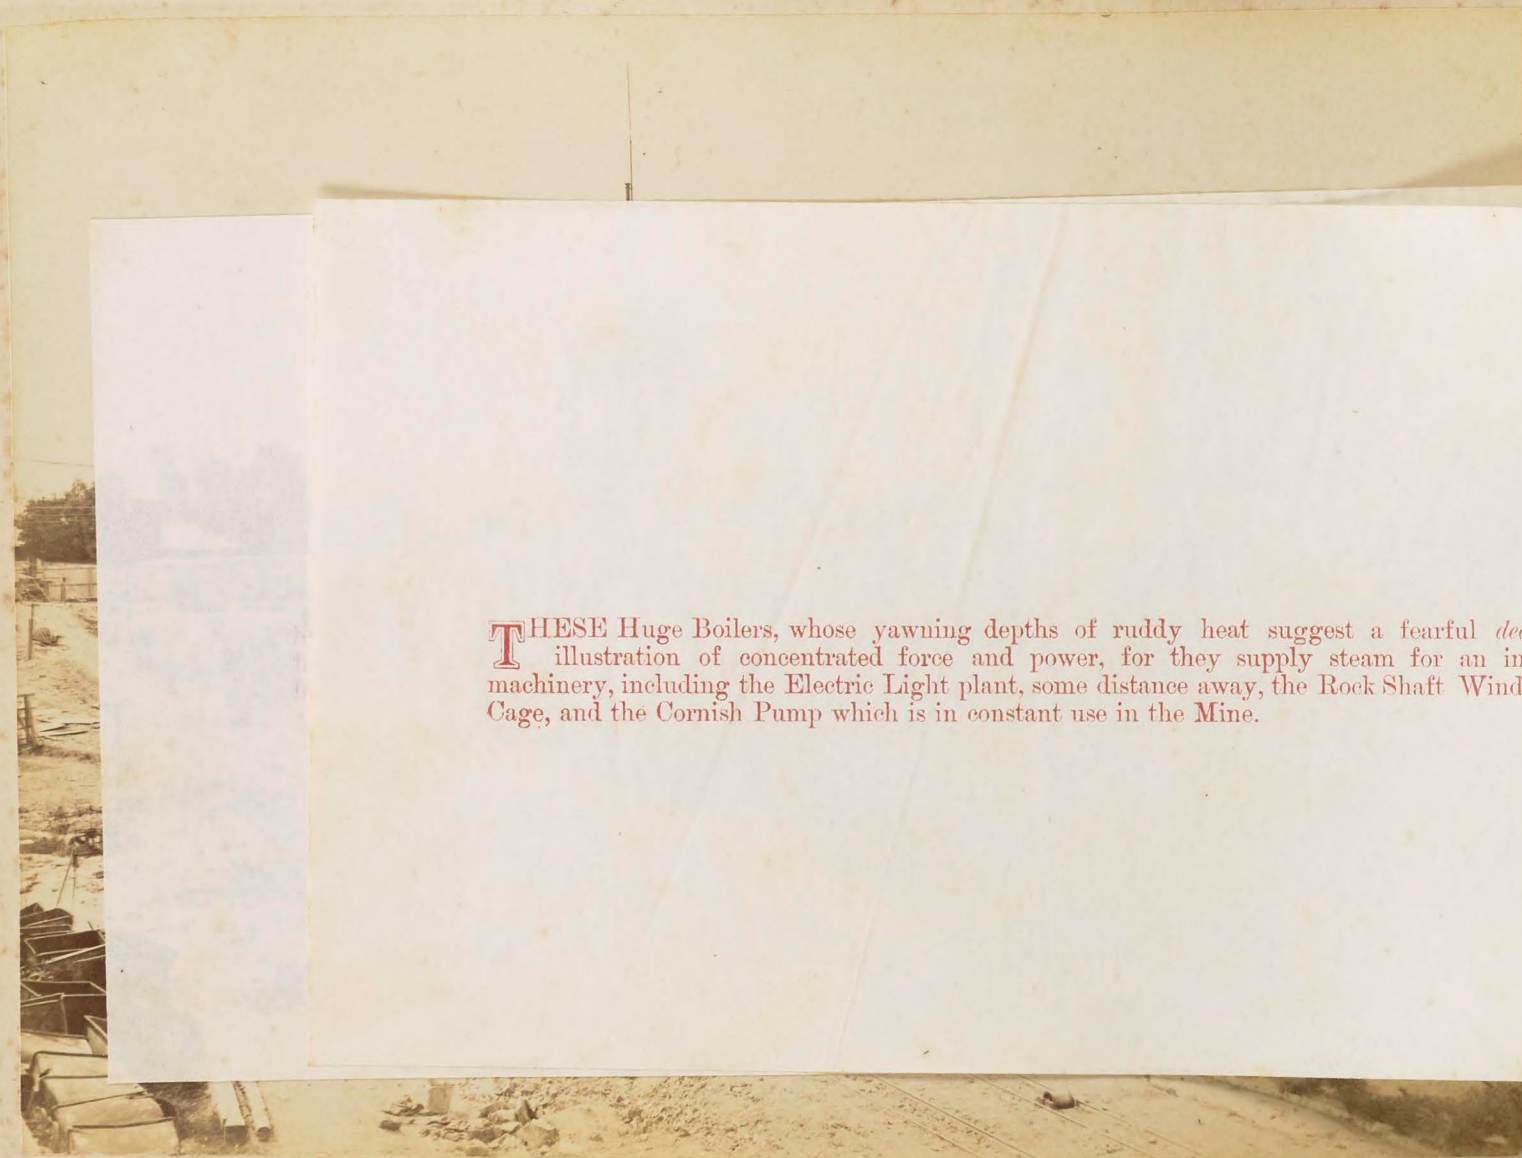 THESE Huge Boilers, whose yawning depths of ruddy heat suggest a fearful
illustration of concentrated force and power, for they supply steam for an
machinery, including the Electric Light plant, some distance away, the Rock Shaft Wind
Cage, and the Cornish Pump which is in constant use in the Mine.